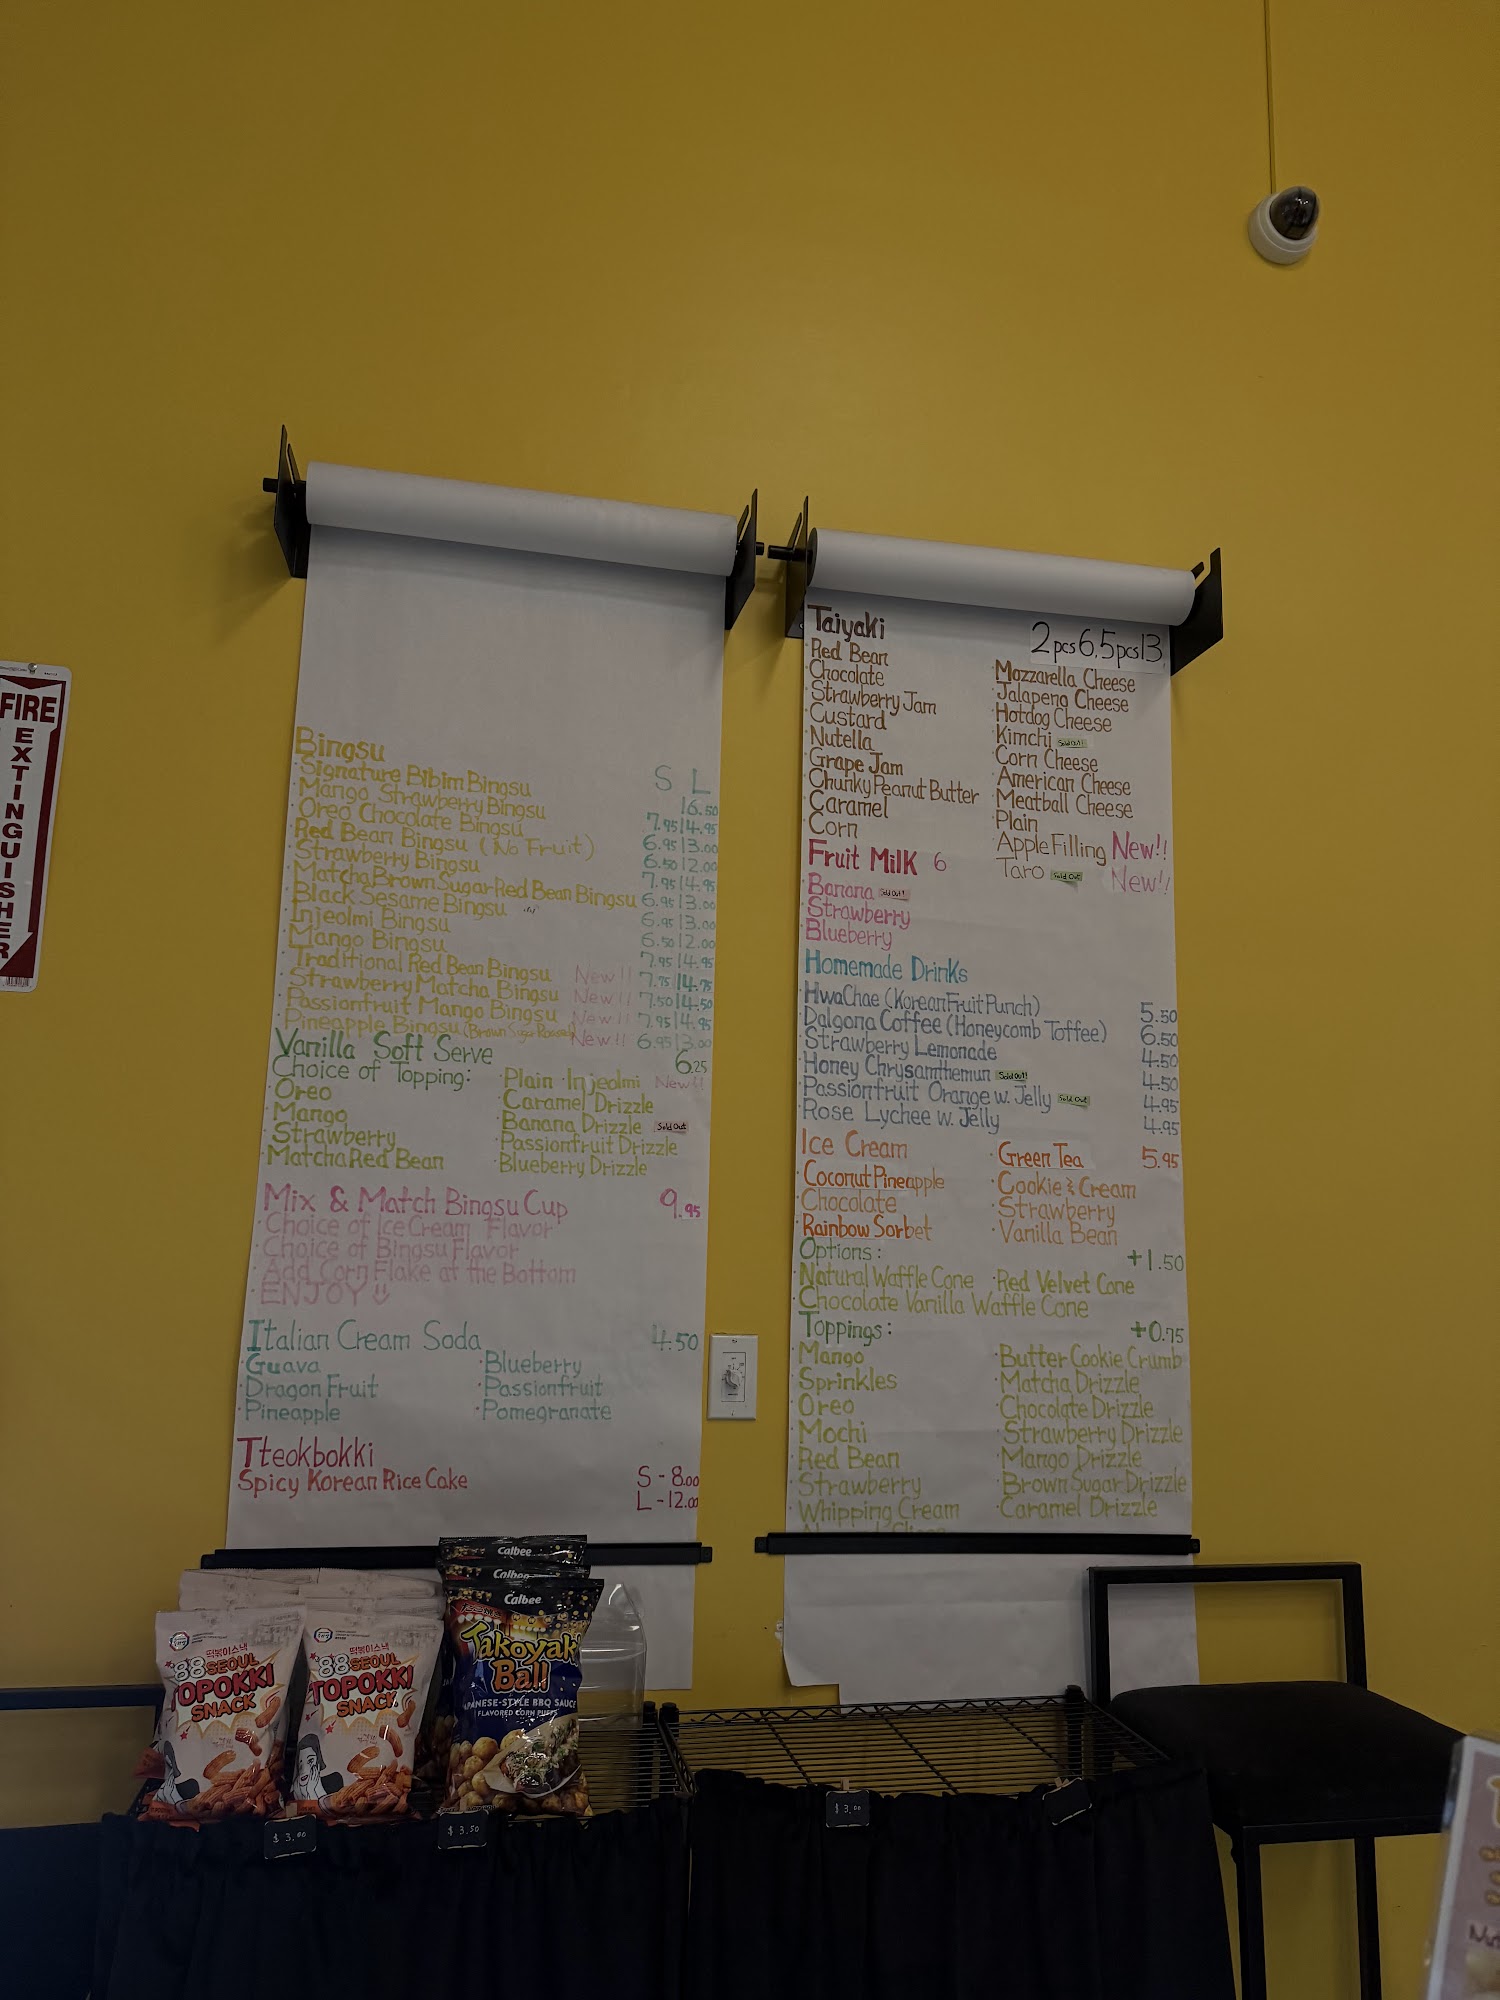 FIRE
EXTINGUISHER
Bingsu
S L
· Signature Bibim Bingsu 16.50
· Mango Strawberry Bingsu 7.95|14.95
· Oreo Chocolate Bingsu 6.95|13.00
· Red Bean Bingsu (No Fruit) 6.50|12.00
· Strawberry Bingsu 7.95|14.95
· Matcha Brown Sugar Red Bean Bingsu 6.95|13.00
· Black Sesame Bingsu 6.95|13.00
· Injeolmi Bingsu 6.50|12.00
· Mango Bingsu 7.95|14.95
· Traditional Red Bean Bingsu New!! 7.75|14.75
· Strawberry Matcha Bingsu New!! 7.50|14.50
· Passionfruit Mango Bingsu New!! 7.95|14.95
· Pineapple Bingsu (Brown Sugar Roasted) New!! 6.95|13.00
Vanilla Soft Serve 6.25
Choice of Topping:
· Oreo
· Mango
· Strawberry
· Matcha Red Bean
· Plain · Injeolmi New!!
· Caramel Drizzle
· Banana Drizzle Sold Out
· Passionfruit Drizzle
· Blueberry Drizzle
Mix & Match Bingsu Cup 9.95
· Choice of Ice Cream Flavor
· Choice of Bingsu Flavor
· Add Corn Flake at the Bottom
· ENJOY
Italian Cream Soda 4.50
· Guava
· Dragon Fruit
· Pineapple
· Blueberry
· Passionfruit
· Pomegranate
Tteokbokki
Spicy Korean Rice Cake S - 8.00
L - 12.00
Taiyaki 2pcs 6, 5pcs 13
· Red Bean
· Chocolate
· Strawberry Jam
· Custard
· Nutella
· Grape Jam
· Chunky Peanut Butter
· Caramel
· Corn
· Mozzarella Cheese
· Jalapeno Cheese
· Hotdog Cheese
· Kimchi Sold Out!
· Corn Cheese
· American Cheese
· Meatball Cheese
· Plain
· Apple Filling New!!
· Taro Sold Out New!!
Fruit Milk 6
· Banana Sold Out!
· Strawberry
· Blueberry
Homemade Drinks
· HwaChae (Korean Fruit Punch) 5.50
· Dalgona Coffee (Honeycomb Toffee) 6.50
· Strawberry Lemonade 4.50
· Honey Chrysanthemun Sold Out! 4.50
· Passionfruit Orange w. Jelly Sold Out 4.95
· Rose Lychee w. Jelly 4.95
Ice Cream 5.95
· Coconut Pineapple
· Chocolate
· Rainbow Sorbet
· Green Tea
· Cookie & Cream
· Strawberry
· Vanilla Bean
Options: +1.50
· Natural Waffle Cone · Red Velvet Cone
· Chocolate Vanilla Waffle Cone
Toppings: +0.75
· Mango
· Sprinkles
· Oreo
· Mochi
· Red Bean
· Strawberry
· Whipping Cream
· Butter Cookie Crumb
· Matcha Drizzle
· Chocolate Drizzle
· Strawberry Drizzle
· Mango Drizzle
· Brown Sugar Drizzle
· Caramel Drizzle
Calbee
Calbee
Calbee
Takoyaki
Ball
JAPANESE-STYLE BBQ SAUCE
FLAVORED CORN PUFFS
떡볶이스낵
88 SEOUL
TOPOKKI
SNACK
떡볶이스낵
88 SEOUL
TOPOKKI
SNACK
$ 3.00
$ 3.50
$ 3.00